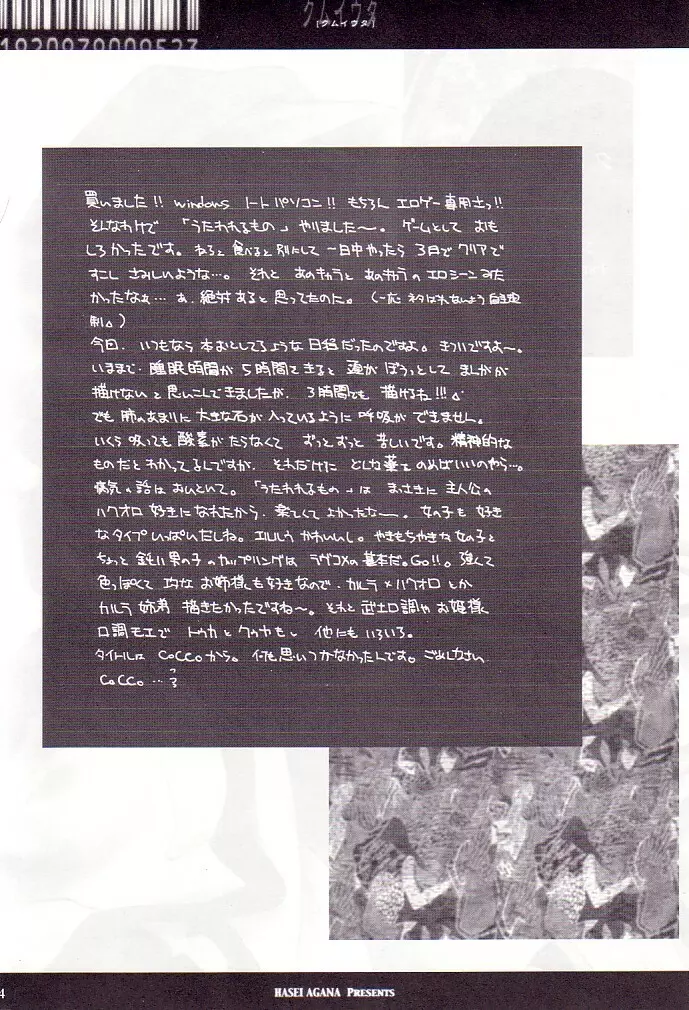 1920979009523
クムイウタ
[クムイウタ]
買いました!! windows ノートパソコン!! もちろん エロゲー専用士っ!!
そんなわけで 「うたわれるもの」 やりました〜。 ゲームとして おも
しろかったです。 ねると食べると 別にして 一日中やったら 3日で クリアで
すこし さみしいような…。 それと あのキャラと あのキャラの エロシーンみた
かったなぁ… あ、絶対あると 思ってたのに。 (一応 ネタばれないよう 自主規
制。)
今回、いつもなら 本おとしてるような 日程だったのですよ。 きついですよ〜。
いままで、睡眠時間が 5時間をきると 頭が ぼうっとして まんがが
描けない と思いこんできましたが、 3時間でも 描けるね!!!
でも 肺のあまりに 大きな石が 入っているように 呼吸が できません。
いくら 吸っても 酸素が たらなくて ずっとずっと 苦しいです。 精神的な
ものだと わかってるんですが、 それだけに どんな薬を のめばいいのやら…。
病気の話は おいといて。 「うたわれるもの」は まっさきに 主人公の
ハクオロ 好きに なれたから、 楽しくて よかったな〜。 女の子も 好き
なタイプ いっぱいだしね。 エルルゥ かわいいし。 やきもちやきな 女の子と
ちょっと 鈍い 男の子 のカップリングは ラヴコメの 基本だ。Go!!。 強くて
色っぽくて な お姉様も好きなので、カルラ×ハクオロ とか
カルラ 姉弟 描きたかったですね〜。 それと 武士口調や お姫様
口調モエで トウカと クゥヤも。 他にも いろいろ。
タイトルは COCCOから。 何も思いつかなかったんです。 ごめんなさい
COCCO…
4
HASEI AGANA PRESENTS